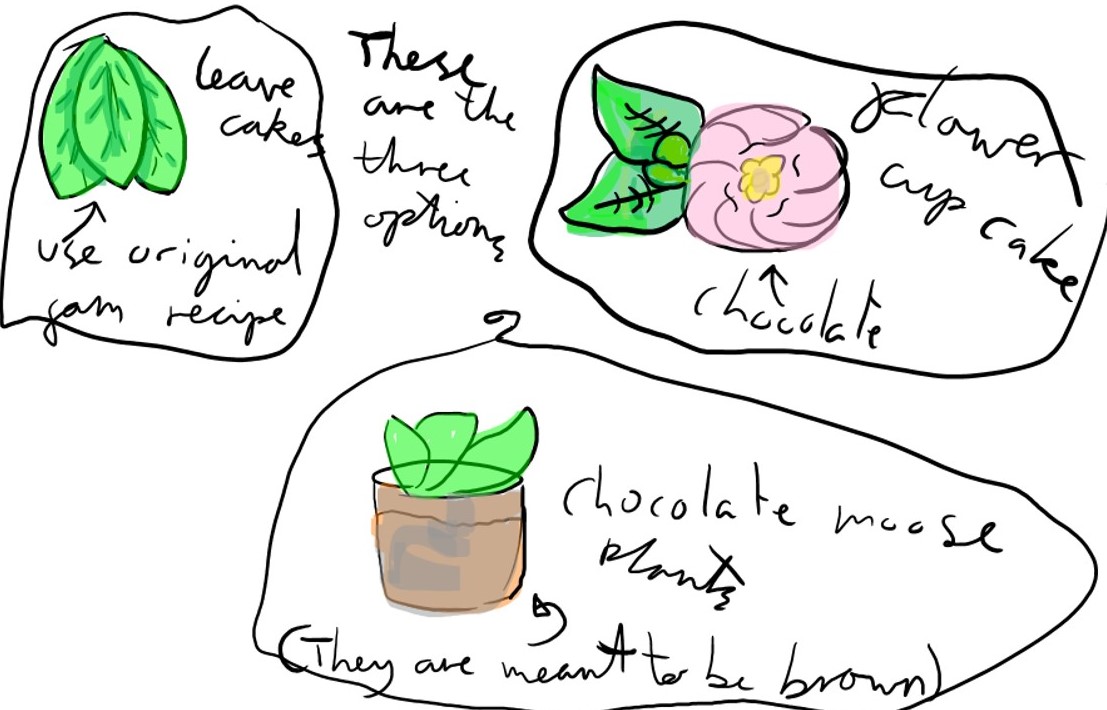 leave
cakes
use original
jam recipe
These
are the
three
options
Flower
cup cake
chocolate
chocolate moose
plants
(They are meant to be brown)